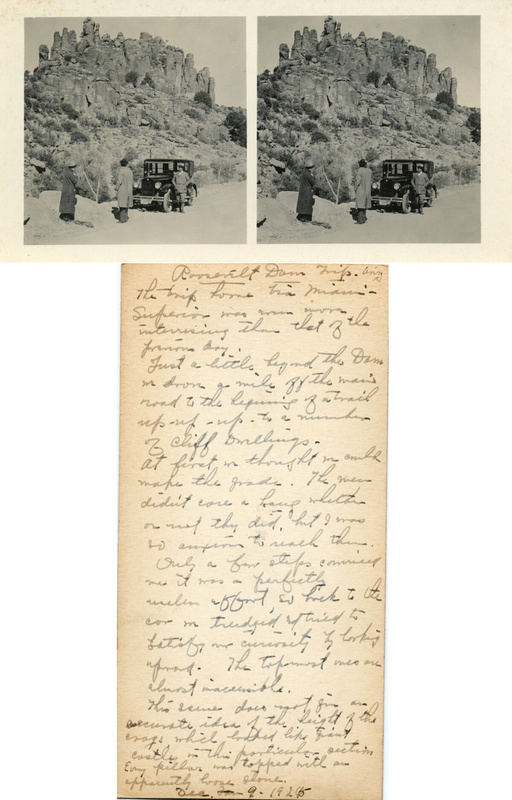 Roosevelt Dam Trip. Ariz
The trip home via Miami -
Superior was even more
interesting than that of the
previous day.
Just a little beyond the Dam
we drove a mile off the main
road to the begining of a trail
up - up - up - to a number
of Cliff Dwellings.
At first we thought we could
make the grade. The men
didn't care a bang whether
or not they did, but I was
so anxious to reach them.
Only a few steps convinced
me it was a perfectly
useless effort, so back to the
car we trudged & tried to
satisfy our curiosity by looking
upward. The topmost ones are
almost inaccessible.
This scene does not give an
accurate idea of the height of the
crags which looked like giant
castles in this particular section
Every pillar was topped with an
apparently loose stone.
Dec. 9 - 1925